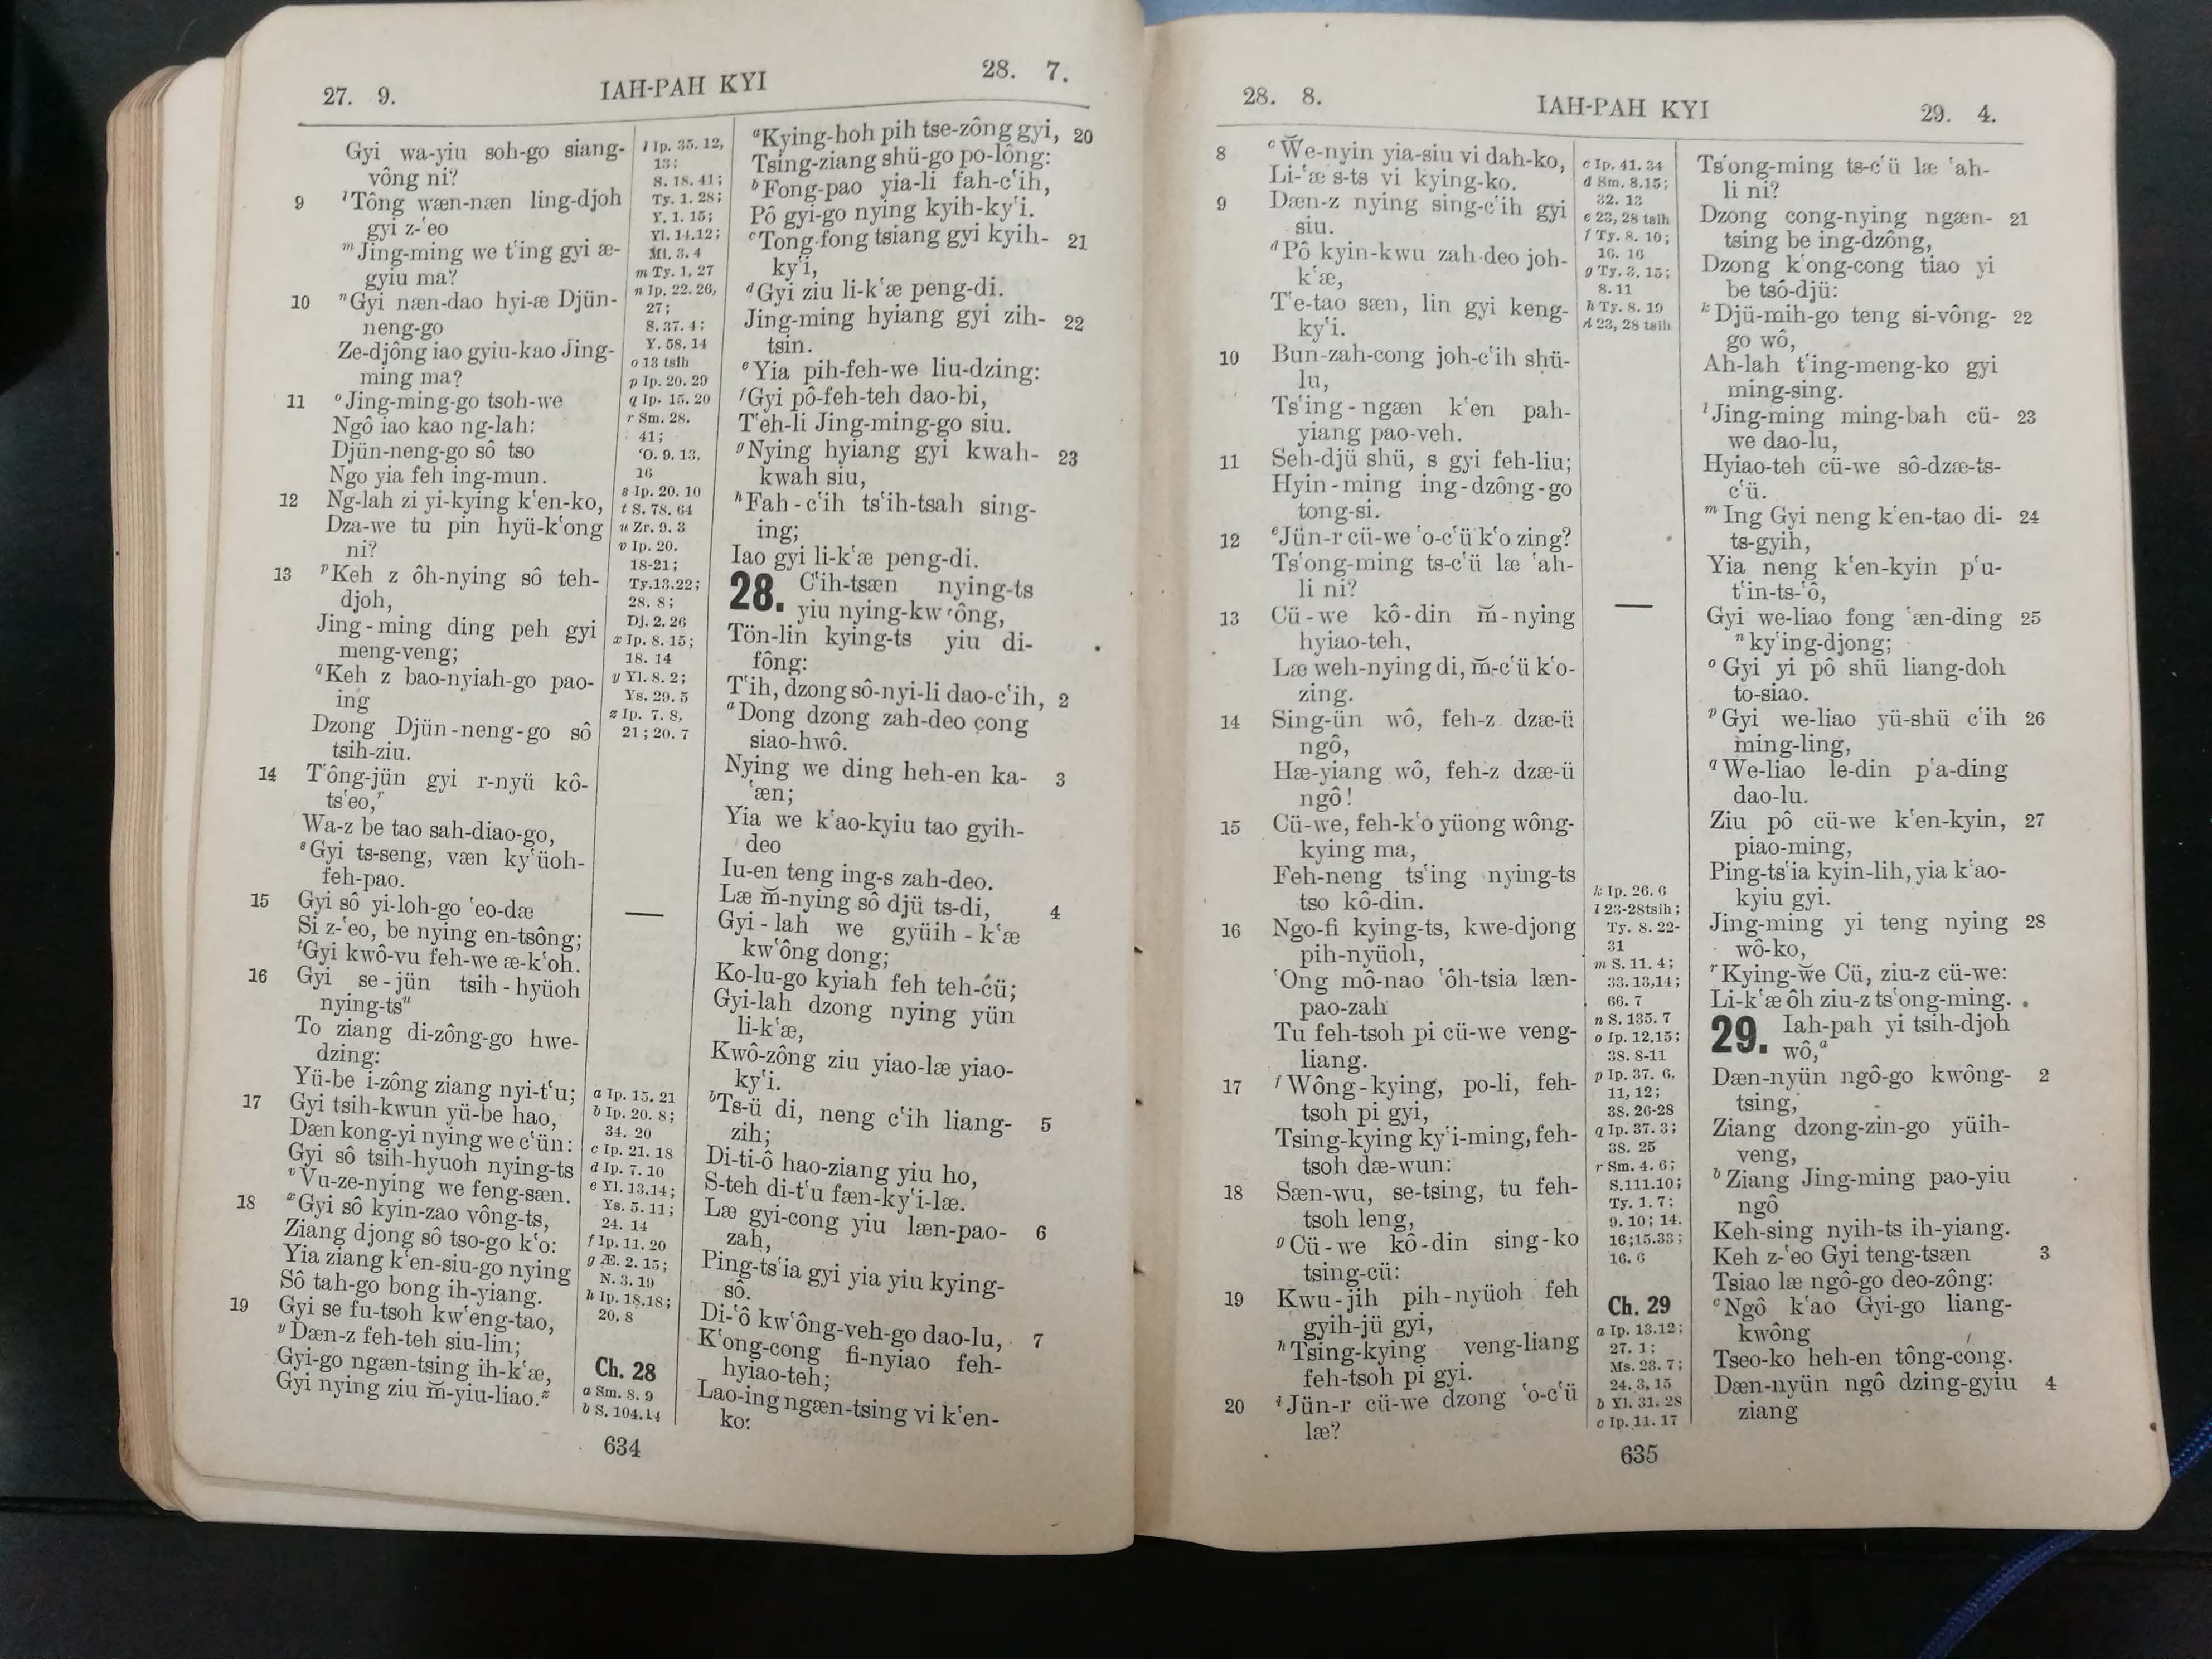 27. 9.
IAH-PAH KYI
28. 7.
Gyi wa-yiu soh-go siang-
vông ni?
9
ˡTông wæn-næn ling-djoh
gyi z-ʻeo
ᵐJing-ming we tʻing gyi æ-
gyiu ma?
10
ⁿGyi næn-dao hyi-æ Djün-
neng-go
Ze-djông iao gyiu-kao Jing-
ming ma?
11
ᵒJing-ming-go tsoh-we
Ngô iao kao ng-lah:
Djün-neng-go sô tso
Ngo yia feh ing-mun.
12
Ng-lah zi yi-kying kʻen-ko,
Dza-we tu pin hyü-kʻong
ni?
13
ᵖKeh z ôh-nying sô teh-
djoh,
Jing-ming ding peh gyi
meng-veng;
𐞥Keh z bao-nyiah-go pao-
ing
Dzong Djün-neng-go sô
tsih-ziu.
14
Tʻông-jün gyi r-nyü kô-
tsʻeo,ʳ
Wa-z be tao sah-diao-go,
ˢGyi ts-seng, væn kyʻüoh-
feh-pao.
15
Gyi sô yi-loh-go ʻeo-dæ
Si z-ʻeo, be nying en-tsông;
ᵗGyi kwô-vu feh-we æ-kʻoh.
16
Gyi se-jün tsih-hyüoh
nying-tsᵘ
To ziang di-zông-go hwe-
dzing:
Yü-be i-zông ziang nyi-tʻu;
17
Gyi tsih-kwun yü-be hao,
Dæn kong-yi nying we cʻün:
Gyi sô tsih-hyuoh nying-ts
ᵛVu-ze-nying we feng-sæn.
18
ˣGyi sô kyin-zao vông-ts,
Ziang djong sô tso-go kʻo:
Yia ziang kʻen-siu-go nying
Sô tah-go bong ih-yiang.
19
Gyi se fu-tsoh kwʻeng-tao,
ʸDæn-z feh-teh siu-lin;
Gyi-go ngæn-tsing ih-kʻæ,
Gyi nying ziu m̆-yiu-liao.ᶻ
l Ip. 35. 12,
13;
S. 18. 41;
Ty. 1. 28;
Y. 1. 15;
Yl. 14.12;
Mi. 3. 4
m Ty. 1. 27
n Ip. 22. 26,
27;
S. 37. 4;
Y. 58. 14
o 13 tsih
p Ip. 20. 29
q Ip. 15. 20
r Sm. 28.
41;
ʻO. 9. 13,
16
s Ip. 20. 10
t S. 78. 64
u Zr. 9. 3
v Ip. 20.
18-21;
Ty.13.22;
28. 8;
Dj. 2. 26
x Ip. 8. 15;
18. 14
y Yl. 8. 2;
Ys. 29. 5
z Ip. 7. 8,
21; 20. 7
a Ip. 15. 21
b Ip. 20. 8;
34. 20
c Ip. 21. 18
d Ip. 7. 10
e Yl. 13.14;
Ys. 5. 11;
24. 14
f Ip. 11. 20
g Æ. 2. 15;
N. 3. 19
h Ip. 18.18;
20. 8
Ch. 28
a Sm. 8. 9
b S. 104.14
ᵃKying-hoh pih tse-zông gyi, 20
Tsing-ziang shü-go po-lông:
ᵇFong-pao yia-li fah-cʻih,
Pô gyi-go nying kyih-kyʻi.
ᶜTong-fong tsiang gyi kyih- 21
kyʻi,
ᵈGyi ziu li-kʻæ peng-di.
Jing-ming hyiang gyi zih- 22
tsin.
ᵉYia pih-feh-we liu-dzing:
ᶠGyi pô-feh-teh dao-bi,
Tʻeh-li Jing-ming-go siu.
ᵍNying hyiang gyi kwah- 23
kwah siu,
ʰFah-cʻih tsʻih-tsah sing-
ing;
Iao gyi li-kʻæ peng-di.
28. Cʻih-tsæn nying-ts
yiu nying-kwʻông,
Tön-lin kying-ts yiu di-
fông:
Tʻih, dzong sô-nyi-li dao-cʻih, 2
ᵃDong dzong zah-deo cong
siao-hwô.
Nying we ding heh-en ka- 3
ʻæn;
Yia we kʻao-kyiu tao gyih-
deo
Iu-en teng ing-s zah-deo.
Læ m̆-nying sô djü ts-di, 4
Gyi-lah we gyüih-kʻæ
kwʻông dong;
Ko-lu-go kyiah feh teh-cü;
Gyi-lah dzong nying yün
li-kʻæ,
Kwô-zông ziu yiao-læ yiao-
kyʻi.
ᵇTs-ü di, neng cʻih liang- 5
zih;
Di-ti-ô hao-ziang yiu ho,
S-teh di-tʻu fæn-kyʻi-læ.
Læ gyi-cong yiu læn-pao- 6
zah,
Ping-tsʻia gyi yia yiu kying-
sô.
Di-ʻô kwʻông-veh-go dao-lu, 7
Kʻong-cong fi-nyiao feh-
hyiao-teh;
Lao-ing ngæn-tsing vi kʻen-
ko:
634
28. 8.
IAH-PAH KYI
29. 4.
8
ᶜWe-nyin yia-siu vi dah-ko,
Li-ʻæ s-ts vi kying-ko.
9
Dæn-z nying sing-cʻih gyi
siu.
ᵈPô kyin-kwu zah-deo joh-
kʻæ,
Tʻe-tao sæn, lin gyi keng-
kyʻi.
10
Bun-zah-cong joh-cʻih shü-
lu,
Tsʻing-ngæn kʻen pah-
yiang pao-veh.
11
Seh-djü shü, s gyi feh-liu;
Hyin-ming ing-dzông-go
tong-si.
12
ᵉJün-r cü-we ʻo-cʻü kʻo zing?
Tsʻong-ming ts-cʻü læ ʻah-
li ni?
13
Cü-we kô-din m̆-nying
hyiao-teh,
Læ weh-nying di, m̆-cʻü kʻo-
zing.
14
Sing-ün wô, feh-z dzæ-ü
ngô,
Hæ-yiang wô, feh-z dzæ-ü
ngô!
15
Cü-we, feh-kʻo yüong wông-
kying ma,
Feh-neng tsʻing nying-ts
tso kô-din.
16
Ngo-fi kying-ts, kwe-djong
pih-nyüoh,
ʻOng mô-nao ʻôh-tsia læn-
pao-zah
Tu feh-tsoh pi cü-we veng-
liang.
17
ᶠWông-kying, po-li, feh-
tsoh pi gyi,
Tsing-kying kyʻi-ming, feh-
tsoh dæ-wun:
18
Sæn-wu, se-tsing, tu feh-
tsoh leng,
ᵍCü-we kô-din sing-ko
tsing-cü:
19
Kwu-jih pih-nyüoh feh
gyih-jü gyi,
ʰTsing-kying veng-liang
feh-tsoh pi gyi.
20
ⁱJün-r cü-we dzong ʻo-cʻü
læ?
c Ip. 41. 34
d Sm. 8.15;
32. 13
e 23, 28 tsih
f Ty. 8. 10;
16. 16
g Ty. 3. 15;
8. 11
h Ty. 8. 19
i 23, 28 tsih
k Ip. 26. 6
l 23-28tsih;
Ty. 8. 22-
31
m S. 11. 4;
33. 13,14;
66. 7
n S. 135. 7
o Ip. 12.15;
38. 8-11
p Ip. 37. 6,
11, 12;
38. 26-28
q Ip. 37. 3;
38. 25
r Sm. 4. 6;
S.111.10;
Ty. 1. 7;
9. 10; 14.
16;15.33;
16. 6
Ch. 29
a Ip. 13.12;
27. 1;
Ms. 23. 7;
24. 3, 15
b Yl. 31. 28
c Ip. 11. 17
Tsʻong-ming ts-cʻü læ ʻah-
li ni?
Dzong cong-nying ngæn- 21
tsing be ing-dzông,
Dzong kʻong-cong tiao yi
be tsô-djü:
ᵏDjü-mih-go teng si-vông- 22
go wô,
Ah-lah tʻing-meng-ko gyi
ming-sing.
ˡJing-ming ming-bah cü- 23
we dao-lu,
Hyiao-teh cü-we sô-dzæ-ts-
cʻü.
ᵐIng Gyi neng kʻen-tao di- 24
ts-gyih,
Yia neng kʻen-kyin pʻu-
tʻin-ts-ʻô,
Gyi we-liao fong ʻæn-ding 25
ⁿkyʻing-djong;
ᵒGyi yi pô shü liang-doh
to-siao.
ᵖGyi we-liao yü-shü cʻih 26
ming-ling,
𐞥We-liao le-din pʻa-ding
dao-lu.
Ziu pô cü-we kʻen-kyin, 27
piao-ming,
Ping-tsʻia kyin-lih, yia kʻao-
kyiu gyi.
Jing-ming yi teng nying 28
wô-ko,
ʳKying-we Cü, ziu-z cü-we:
Li-kʻæ ôh ziu-z tsʻong-ming.
29. Iah-pah yi tsih-djoh
wô,ᵃ
Dæn-nyün ngô-go kwông- 2
tsing,
Ziang dzong-zin-go yüih-
veng,
ᵇZiang Jing-ming pao-yiu
ngô
Keh-sing nyih-ts ih-yiang.
Keh z-ʻeo Gyi teng-tsæn 3
Tsiao læ ngô-go deo-zông:
ᶜNgô kʻao Gyi-go liang-
kwông
Tseo-ko heh-en tông-cong.
Dæn-nyün ngô dzing-gyiu 4
ziang
635